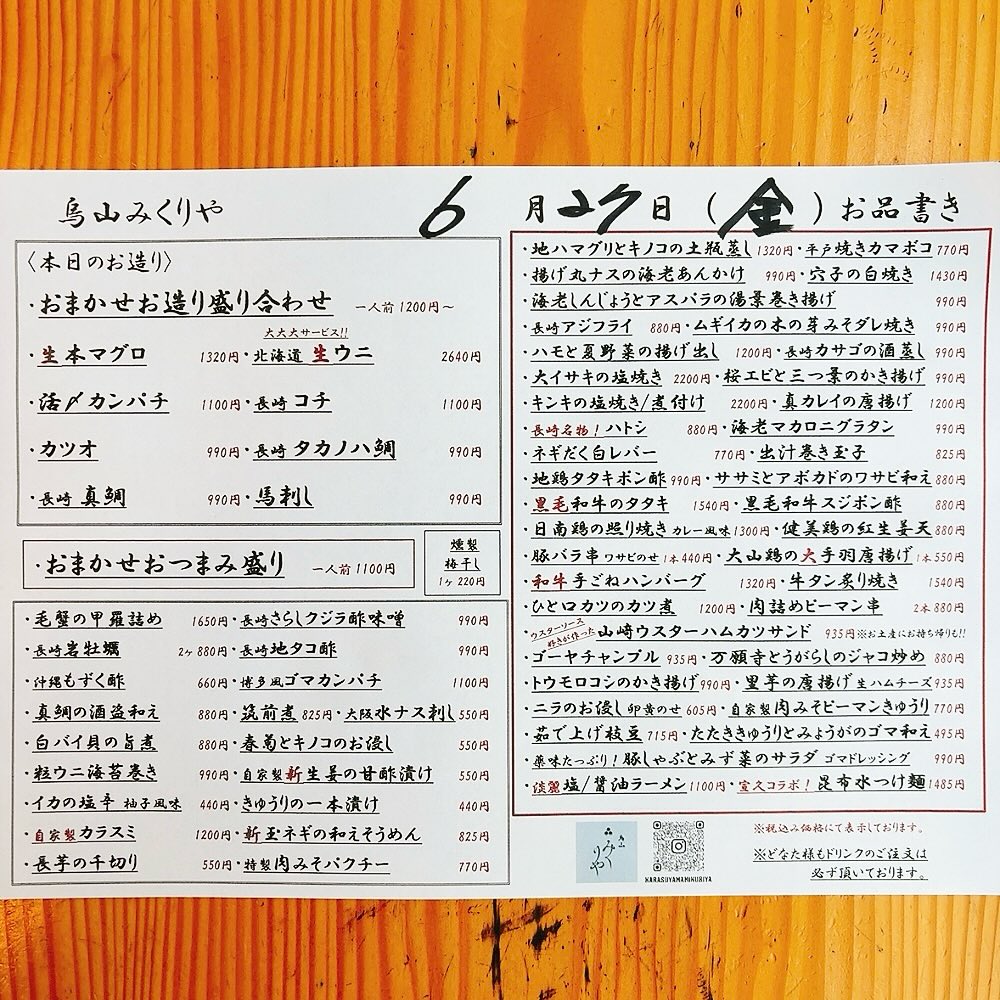 烏山みくりや 6月27日(金)お品書き
〈本日のお造り〉
・おまかせお造り盛り合わせ 一人前1200円～
大大大サービス!!
・生本マグロ 1320円・北海道 生ウニ 2640円
・活〆カンパチ 1100円・長崎 コチ 1100円
・カツオ 990円・長崎 タカノハ鯛 990円
・長崎 真鯛 990円・馬刺し 990円
・おまかせおつまみ盛り 一人前1100円
燻製
梅干し
1ヶ220円
・毛蟹の甲羅詰め 1650円・長崎さらしクジラ酢味噌 990円
・長崎岩牡蠣 2ヶ880円・長崎地タコ酢 990円
・沖縄もずく酢 660円・博多風ゴマカンパチ 1100円
・真鯛の酒盗和え 880円・筑前煮 825円・大阪水ナス刺し 550円
・白バイ貝の旨煮 880円・春菊とキノコのお浸し 550円
・粒ウニ海苔巻き 990円・自家製新生姜の甘酢漬け 550円
・イカの塩辛 柚子風味 440円・きゅうりの一本漬け 440円
・自家製カラスミ 1200円・新玉ネギの和えそうめん 825円
・長芋の千切り 550円・特製肉みそパクチー 770円
・地ハマグリとキノコの土瓶蒸し 1320円・平戸焼きカマボコ 770円
・揚げ丸ナスの海老あんかけ 990円・穴子の白焼き 1430円
・海老しんじょうとアスパラの湯葉巻き揚げ 990円
・長崎アジフライ 880円・ムギイカの木の芽みそダレ焼き 990円
・ハモと夏野菜の揚げ出し 1200円・長崎カサゴの酒蒸し 990円
・大イサキの塩焼き 2200円・桜エビと三つ葉のかき揚げ 990円
・キンキの塩焼き/煮付け 2200円・真カレイの唐揚げ 1200円
・長崎名物!ハトシ 880円・海老マカロニグラタン 990円
・ネギだく白レバー 770円・出汁巻き玉子 825円
・地鶏タタキポン酢 990円・ササミとアボカドのワサビ和え 880円
・黒毛和牛のタタキ 1540円・黒毛和牛スジポン酢 880円
・日南鶏の照り焼き カレー風味 1300円・健美鶏の紅生姜天 880円
・豚バラ串 ワサビのせ 1本440円・大山鶏の大手羽唐揚げ 1本550円
・和牛手ごねハンバーグ 1320円・牛タン炙り焼き 1540円
・ひと口カツのカツ煮 1200円・肉詰めピーマン串 2本880円
・ウスターソース好きが作った 山崎ウスターハムカツサンド 935円※お土産にお持ち帰りも!!
・ゴーヤチャンプル 935円・万願寺とうがらしのジャコ炒め 880円
・トウモロコシのかき揚げ 990円・里芋の唐揚げ 生ハムチーズ 935円
・ニラのお浸し 卵黄のせ 605円・自家製肉みそピーマンきゅうり 770円
・茹で上げ枝豆 715円・たたききゅうりとみょうがのゴマ和え 495円
・薬味たっぷり!豚しゃぶとみず菜のサラダ ゴマドレッシング 990円
・淡麗塩/醤油ラーメン 1100円・宣久コラボ!昆布水つけ麺 1485円
みくりや
KARASUYAMAMIKURIYA
※税込み価格にて表示しております。
※どなた様もドリンクのご注文は
必ず頂いております。